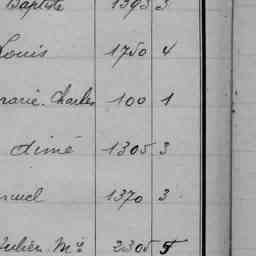 Baptiste 1393 3
Louis 1750 4
Charles 100 1
Aimé 1305 3
1370 3
Julien Mis 2305 5